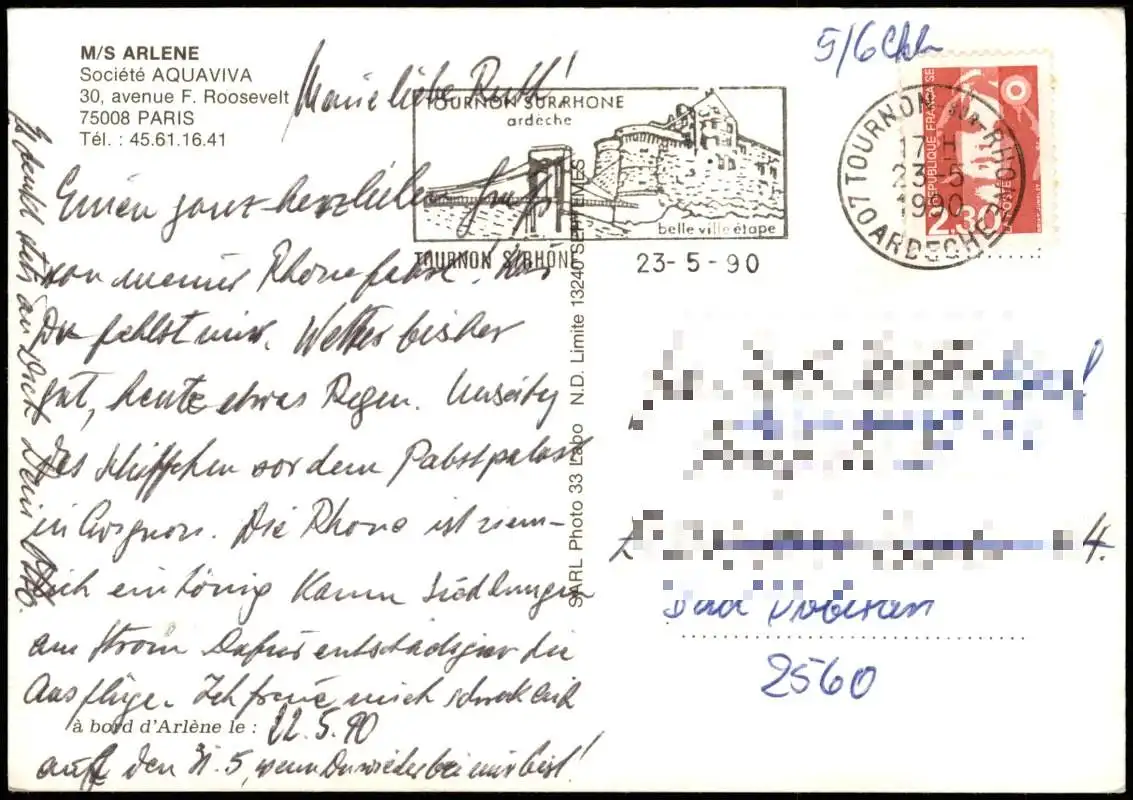 M/S ARLENE
Société AQUAVIVA
30, avenue F. Roosevelt
75008 PARIS
Tél. : 45.61.16.41
Meine liebe Ruth!
Einen ganz herzlichen Gruß
von meiner Rhonefahrt. Nur
Du fehlst mir. Wetter bisher
gut, heute etwas Regen. Umseitig
das Schiffchen vor dem Pabstpalast
in Avignon. Die Rhone ist ziem-
lich eintönig Kaum Siedlungen
am Strom Dafür entschädigen die
Ausflüge. Ich freue mich schrecklich
à bord d'Arlène le : 22.5.90
auf den 31.5, wenn Du wieder bei mir bist!
Es denkt stets an Dich Dein
SARL Photo 33 Labo N.D. Limite 13240 SEPTEMES
TOURNON SUR RHONE
ardèche
belle ville étape
TOURNON S/RHÔNE 23-5-90
07 TOURNON SUR-RHONE
17H
23-5
1990
ARDECHE
REPUBLIQUE FRANÇAISE
LA POSTE
2,30
5/6
4.
Bad Doberan
2560